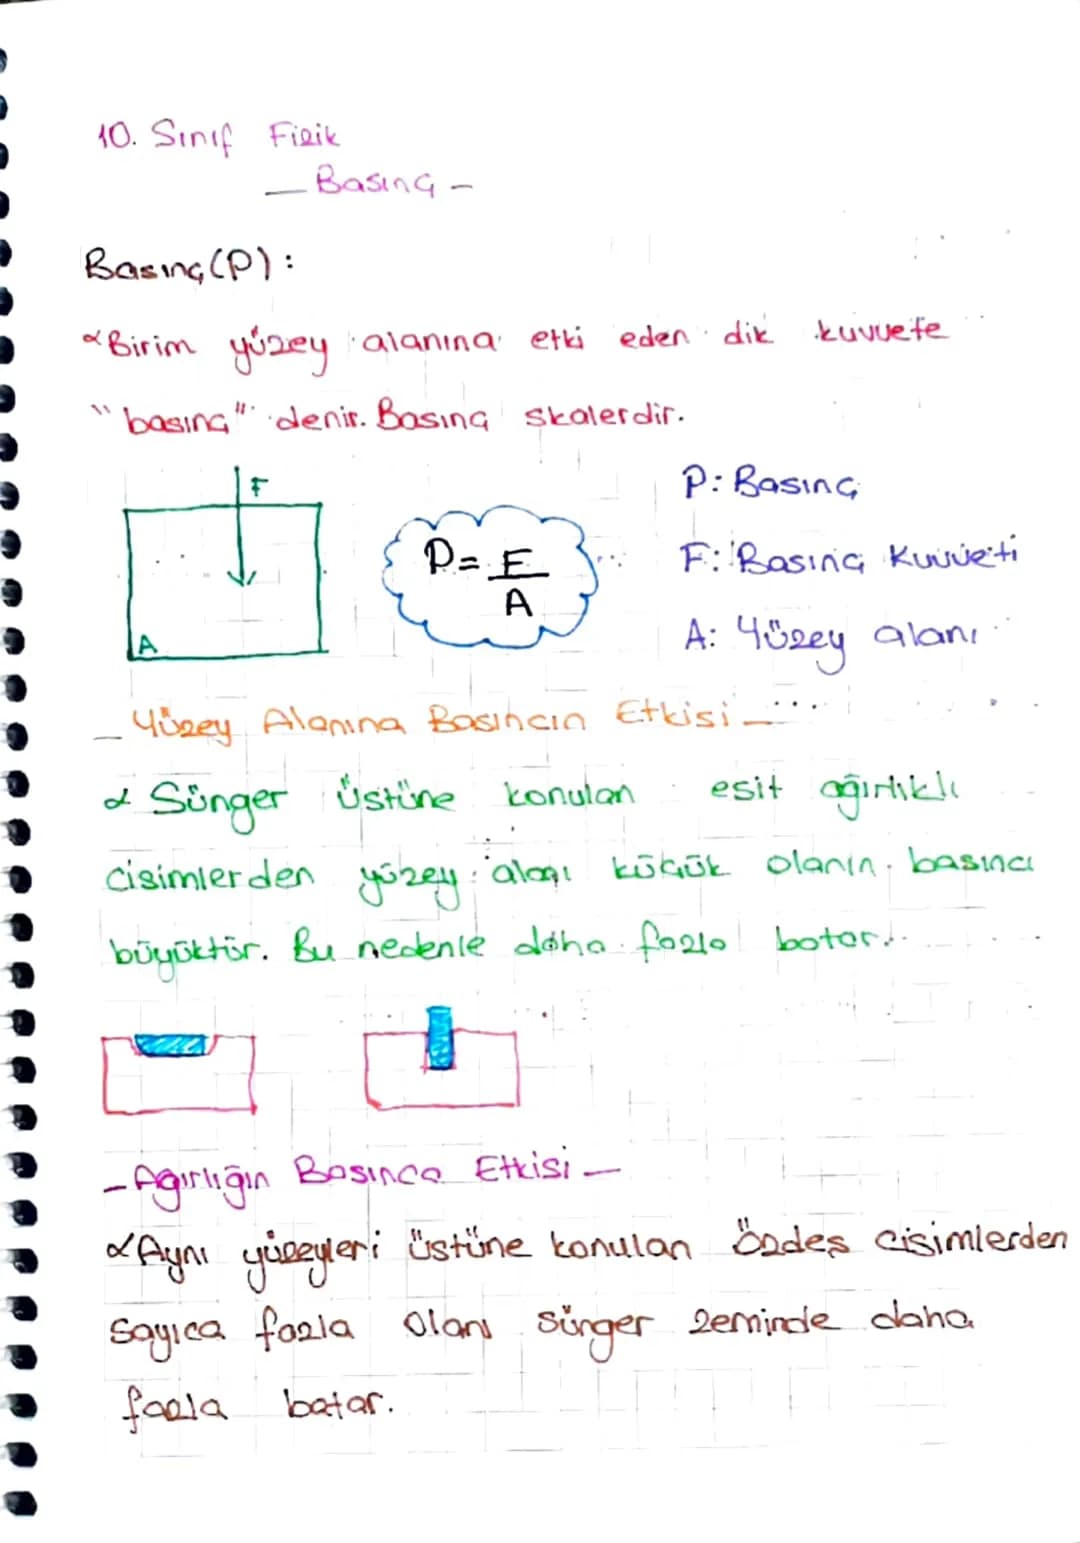 10. Sınıf Fizik
— Basınç —
Basınç (P) :
Birim yüzey alanına etki eden dik kuvvete
"basınç" denir. Basınç skalerdir.
F
A
P = F
A
P: Basınç
F: Basınç Kuvveti
A: Yüzey alanı
— Yüzey Alanına Basıncın Etkisi —
Sünger üstüne konulan esit ağırlıklı
cisimlerden yüzey alanı küçük olanın basıncı
büyüktür. Bu nedenle daha fazla batar.
— Agırlığın Basınca Etkisi —
Aynı yüzeyleri üstüne konulan özdeş cisimlerden
sayıca fazla olanı sünger zeminde daha
fazla batar.